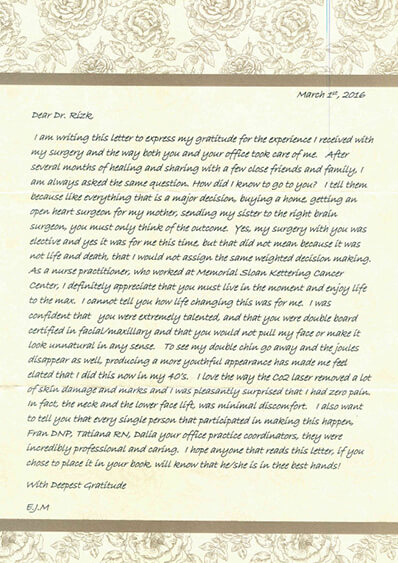 March 1st, 2016
Dear Dr. Rizk,
I am writing this letter to express my gratitude for the experience I received with
my surgery and the way both you and your office took care of me. After
several months of healing and sharing with a few close friends and family, I
am always asked the same question. How did I know to go to you? I tell them
because like everything that is a major decision, buying a home, getting an
open heart surgeon for my mother, sending my sister to the right brain
surgeon, you must only think of the outcome. Yes, my surgery with you was
elective and yes it was for me this time, but that did not mean because it was
not life and death, that I would not assign the same weighted decision making.
As a nurse practitioner, who worked at Memorial Sloan Kettering Cancer
Center, I definitely appreciate that you must live in the moment and enjoy life
to the max. I cannot tell you how life changing this was for me. I was
confident that you were extremely talented, and that you were double board
certified in facial/maxillary and that you would not pull my face or make it
look unnatural in any sense. To see my double chin go away and the joules
disappear as well, producing a more youthful appearance has made me feel
elated that I did this now in my 40's. I love the way the Co2 laser removed a lot
of skin damage and marks and I was pleasantly surprised that I had zero pain.
In fact, the neck and the lower face lift, was minimal discomfort. I also want
to tell you that every single person that participated in making this happen,
Fran DNP, Tatiana RN, Dalia your office practice coordinators, they were
incredibly professional and caring. I hope anyone that reads this letter, if you
chose to place it in your book will know that he/she is in thee best hands!
With Deepest Gratitude
E.J.M